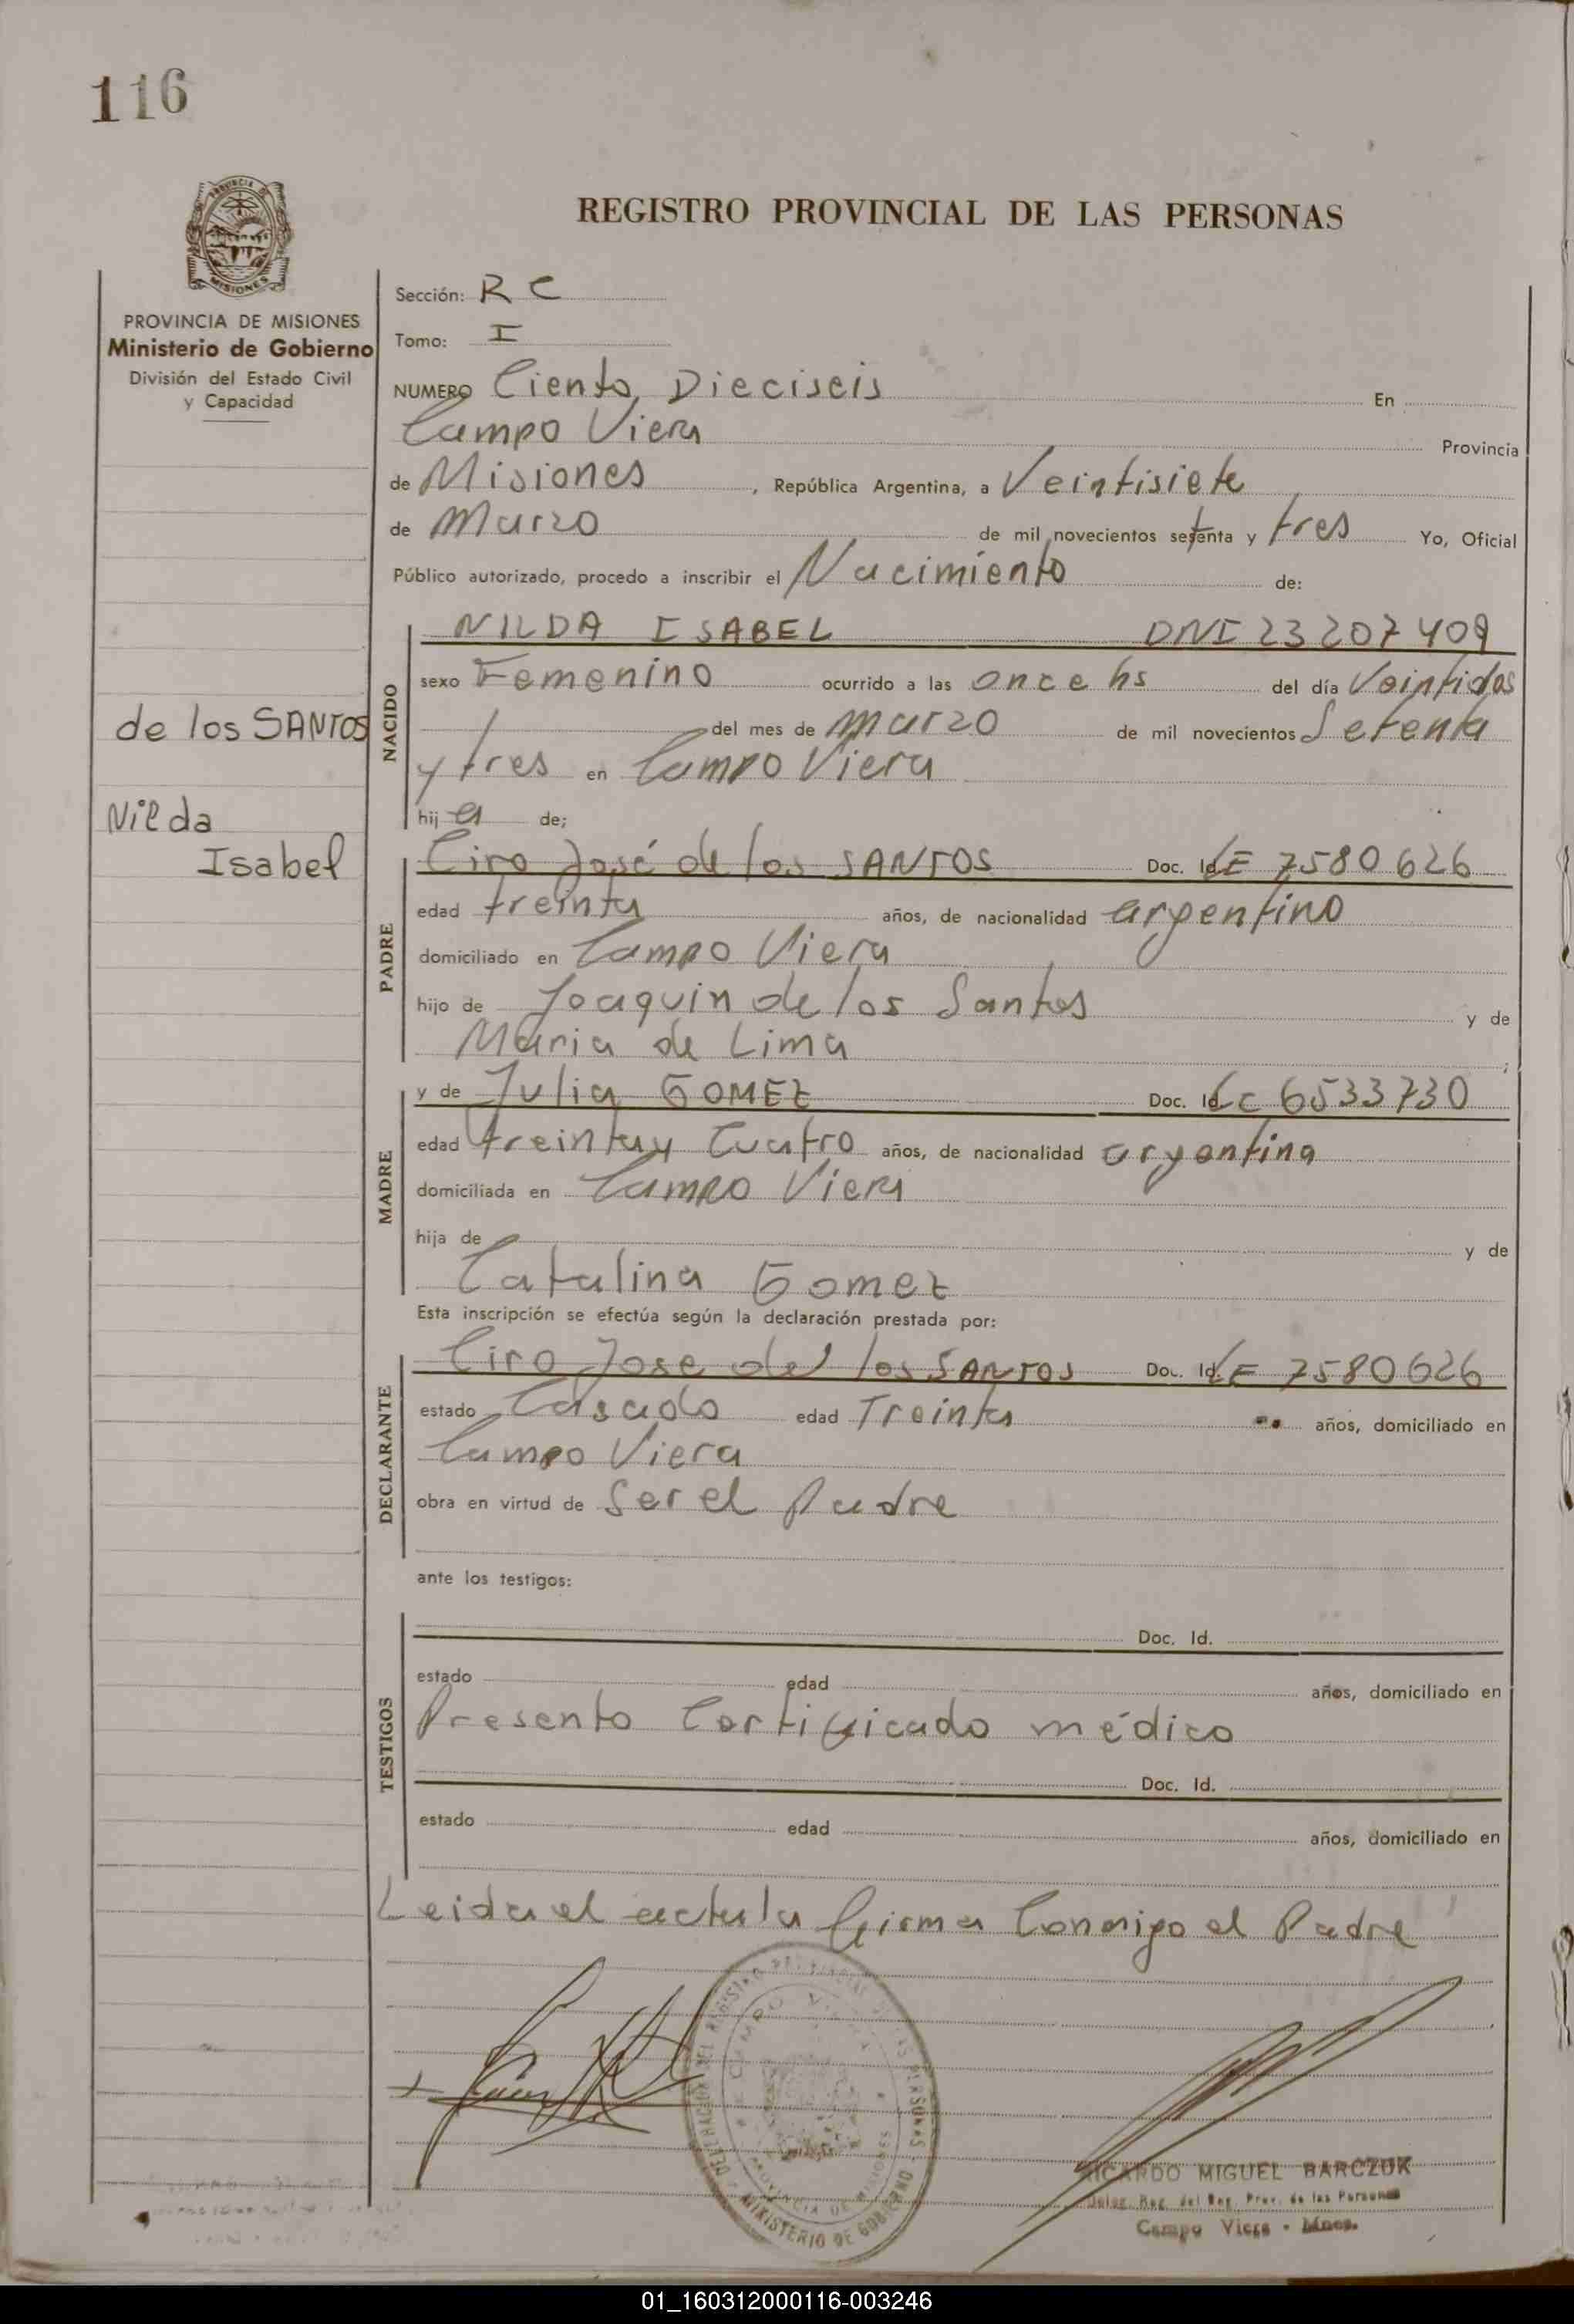 116
PROVINCIA DE MISIONES
Ministerio de Gobierno
División del Estado Civil
y Capacidad
de los SANTOS
Nilda
Isabel
REGISTRO PROVINCIAL DE LAS PERSONAS
Sección: R C
Tomo: I
NUMERO Ciento Dieciseis En
Campo Viera Provincia
de Misiones, República Argentina, a Veintisiete
de Marzo de mil novecientos setenta y tres Yo, Oficial
Público autorizado, procedo a inscribir el Nacimiento de:
NACIDO
NILDA ISABEL DNI 23207409
sexo Femenino ocurrido a las once hs del día Veintidos
del mes de marzo de mil novecientos Setenta
y tres en Campo Viera
hija de;
PADRE
Ciro José de los SANTOS Doc. Id. LE 7580626
edad treinta años, de nacionalidad argentino
domiciliado en Campo Viera
hijo de Joaquin de los Santos y de
Maria de Lima ;
MADRE
y de Julia GOMEZ Doc. Id. LC 6533730
edad treinta y Cuatro años, de nacionalidad argentina
domiciliada en Campo Viera
hija de y de
Catalina Gomez
Esta inscripción se efectúa según la declaración prestada por:
DECLARANTE
Ciro Jose de los SANTOS Doc. Id. LE 7580626
estado Casado edad Treinta años, domiciliado en
Campo Viera
obra en virtud de Ser el Padre
ante los testigos:
TESTIGOS
Doc. Id.
estado edad años, domiciliado en
Presento Certificado médico
Doc. Id.
estado edad años, domiciliado en
Leida el acta la firma Conmigo el Padre
MINISTERIO DE GOBIERNO
CAMPO VIERA
PROVINCIA DE MISIONES
RICARDO MIGUEL BARCZUK
Deleg. Reg. del Reg. Prov. de las Personas
Campo Viera - Mnes.
01_160312000116-003246